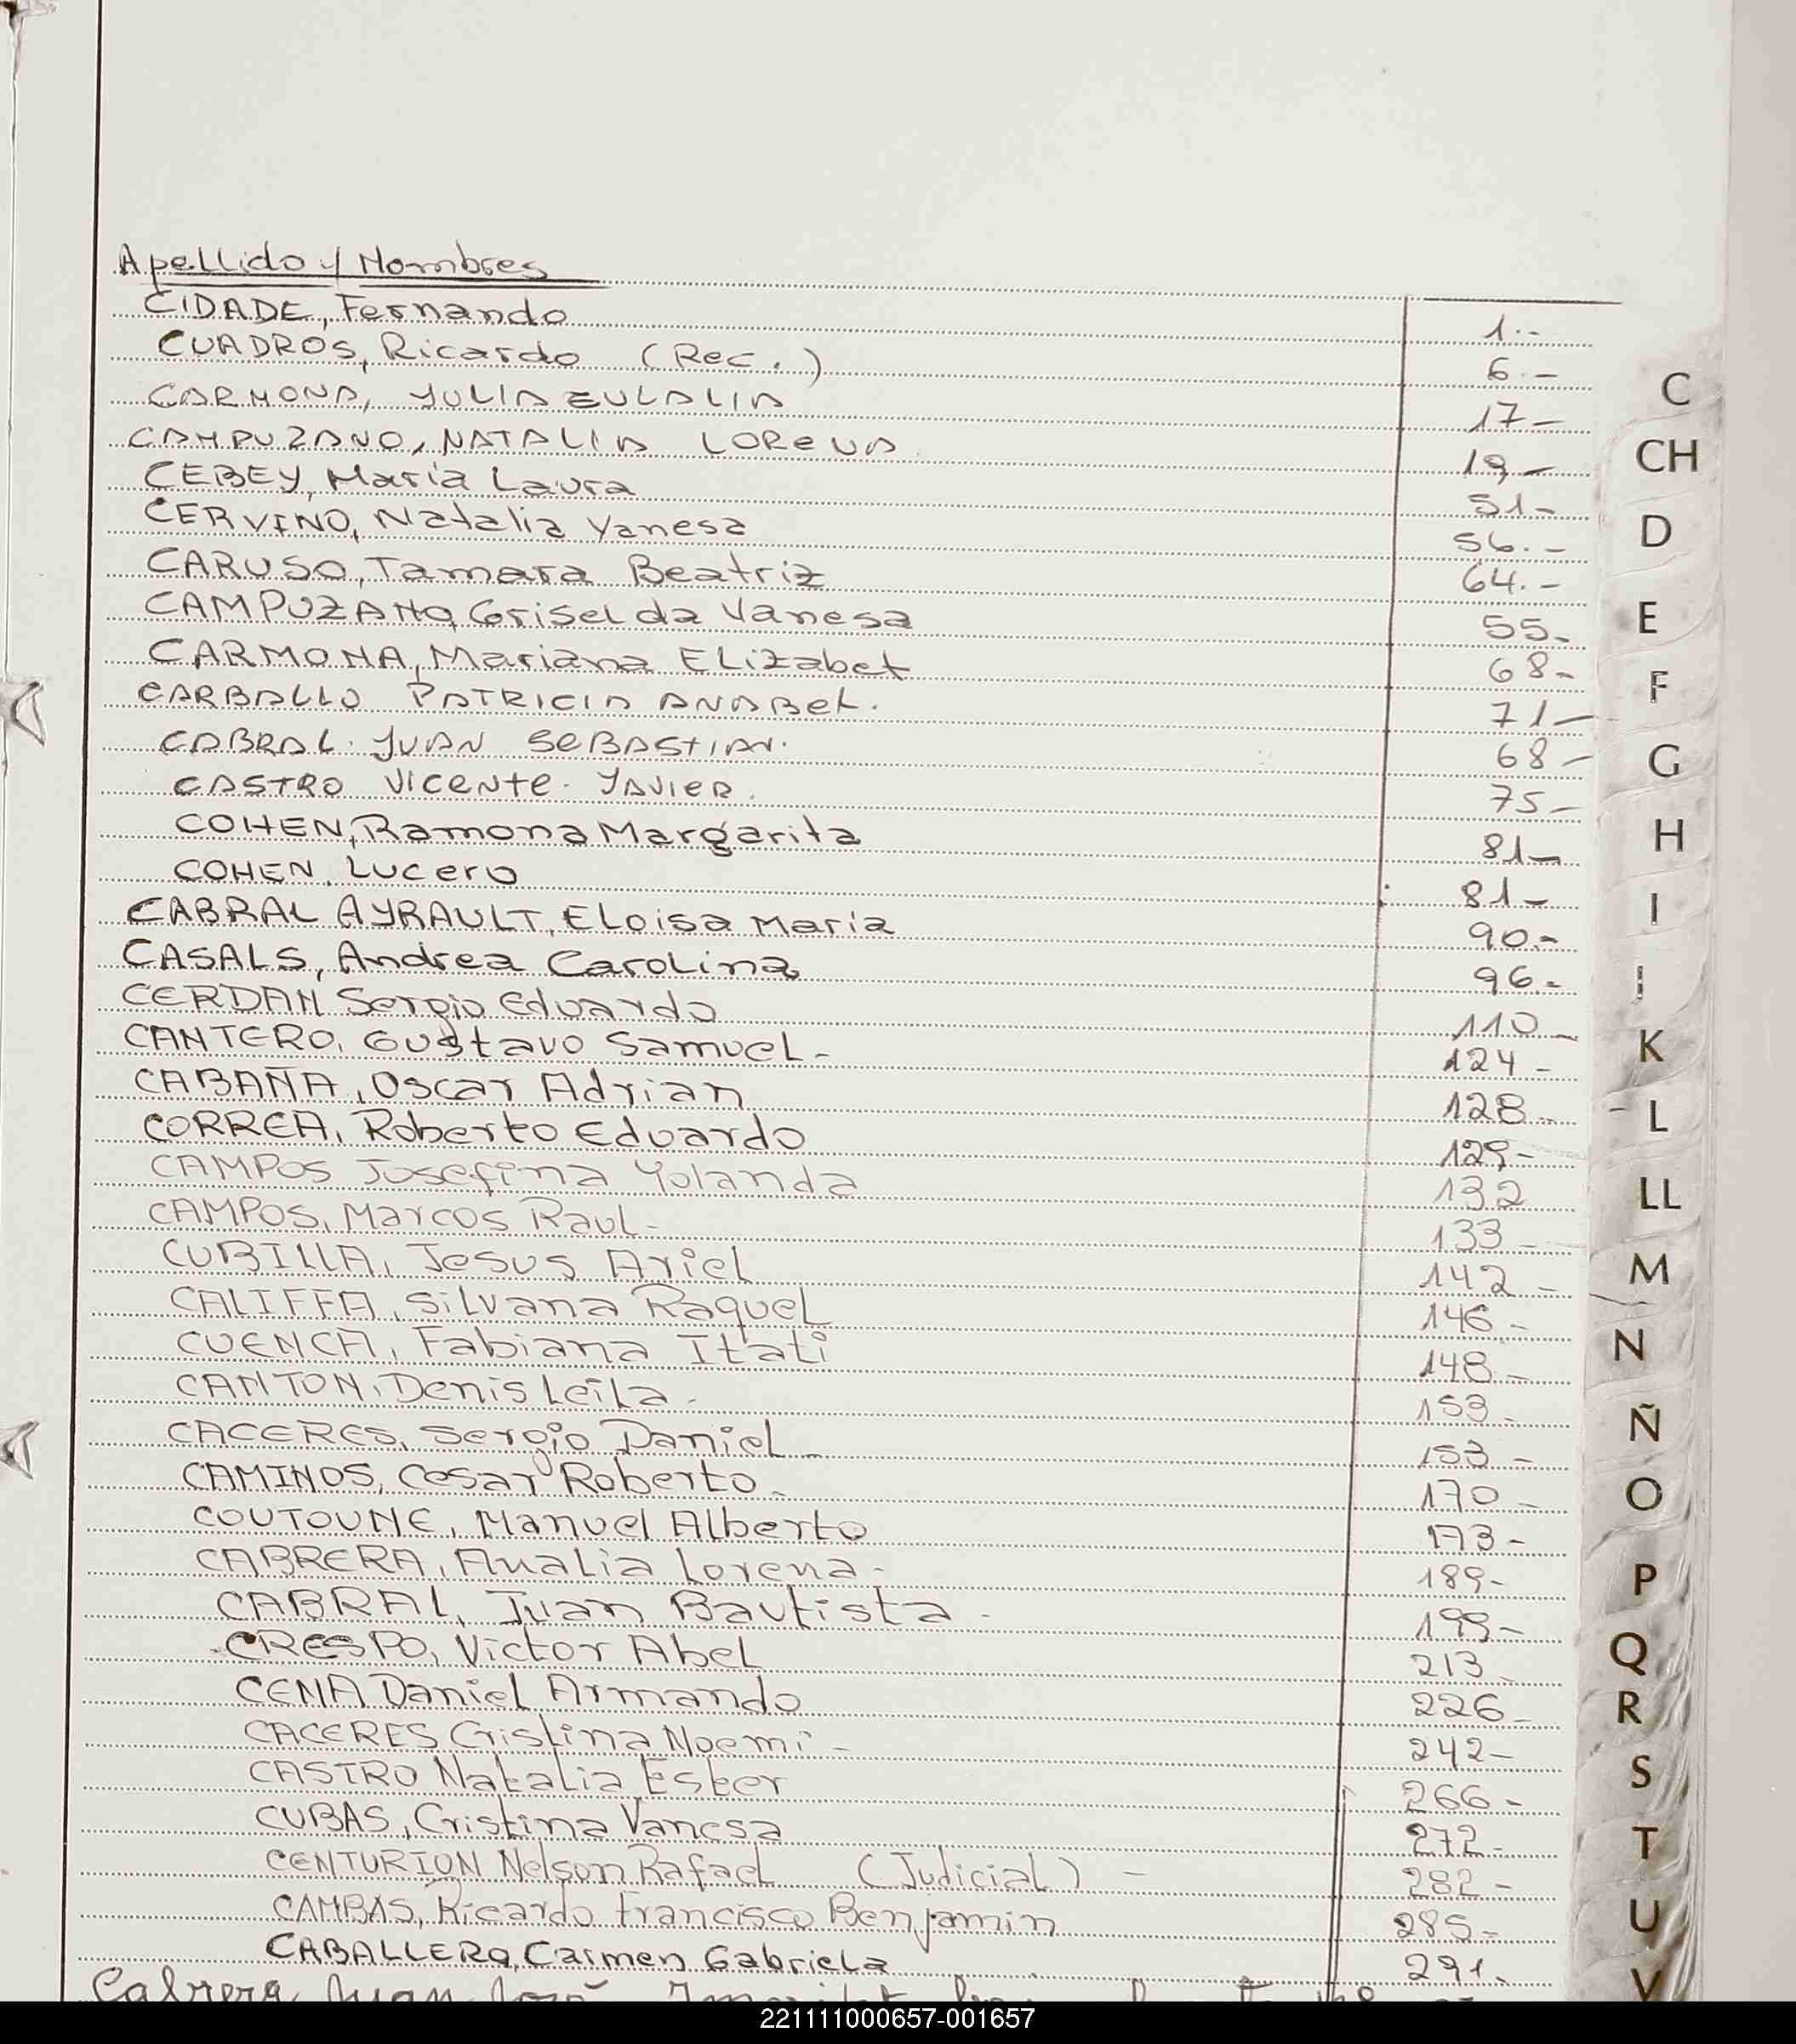 Apellido y Nombres
CIDADE, Fernando 1.-
CUADROS, Ricardo (Rec.) 6.-
CARMONA, JULIA EULALIA 17-
CAMPUZANO, NATALIA LORENA 19-
CEBEY, María Laura 51-
CERVINO, Natalia Yanesa 56.-
CARUSO, Tamara Beatriz 64.-
CAMPUZANO, Griselda Vanesa 55-
CARMONA, Mariana ELizabet 68-
CARBALLO PATRICIA ANABEL. 71-
CABRAL. JUAN SEBASTIAN. 68-
CASTRO VICENTE. JAVIER. 75-
COHEN, Ramona Margarita 81-
COHEN, Lucero 81-
CABRAL AYRAULT, ELoisa María 90.-
CASALS, Andrea Carolina 96.-
CERDAN Sergio Eduardo 110-
CANTERO, Gustavo Samuel- 124-
CABAÑA, Oscar Adrian 128-
CORREA, Roberto Eduardo 129-
CAMPOS Josefina Yolanda 132
CAMPOS, Marcos Raul- 133-
CUBILLA, Jesus Ariel 142-
CALIFFA, Silvana Raquel 146-
CUENCA, Fabiana Itati 148-
CANTON, Denis Leila- 153-
CACERES, Sergio Daniel- 153-
CAMINOS, Cesar Roberto- 170-
COUTOUNE, Manuel Alberto 173-
CABRERA, Analia Lorena- 189-
CABRAL, Juan Bautista- 199-
CRESPO, Victor Abel 213-
CENA Daniel Armando 226-
CACERES Cristina Noemi- 242-
CASTRO Natalia Ester 266-
CUBAS, Cristina Vanesa 272-
CENTURION Nelson Rafael (Judicial)- 282-
CAMBAS, Ricardo Francisco Benjamin 285-
CABALLERO, Carmen Gabriela 291.
Cabrera, Juan José
C
CH
D
E
F
G
H
I
K
L
LL
M
N
Ñ
O
P
Q
R
S
T
U
V
221111000657-001657